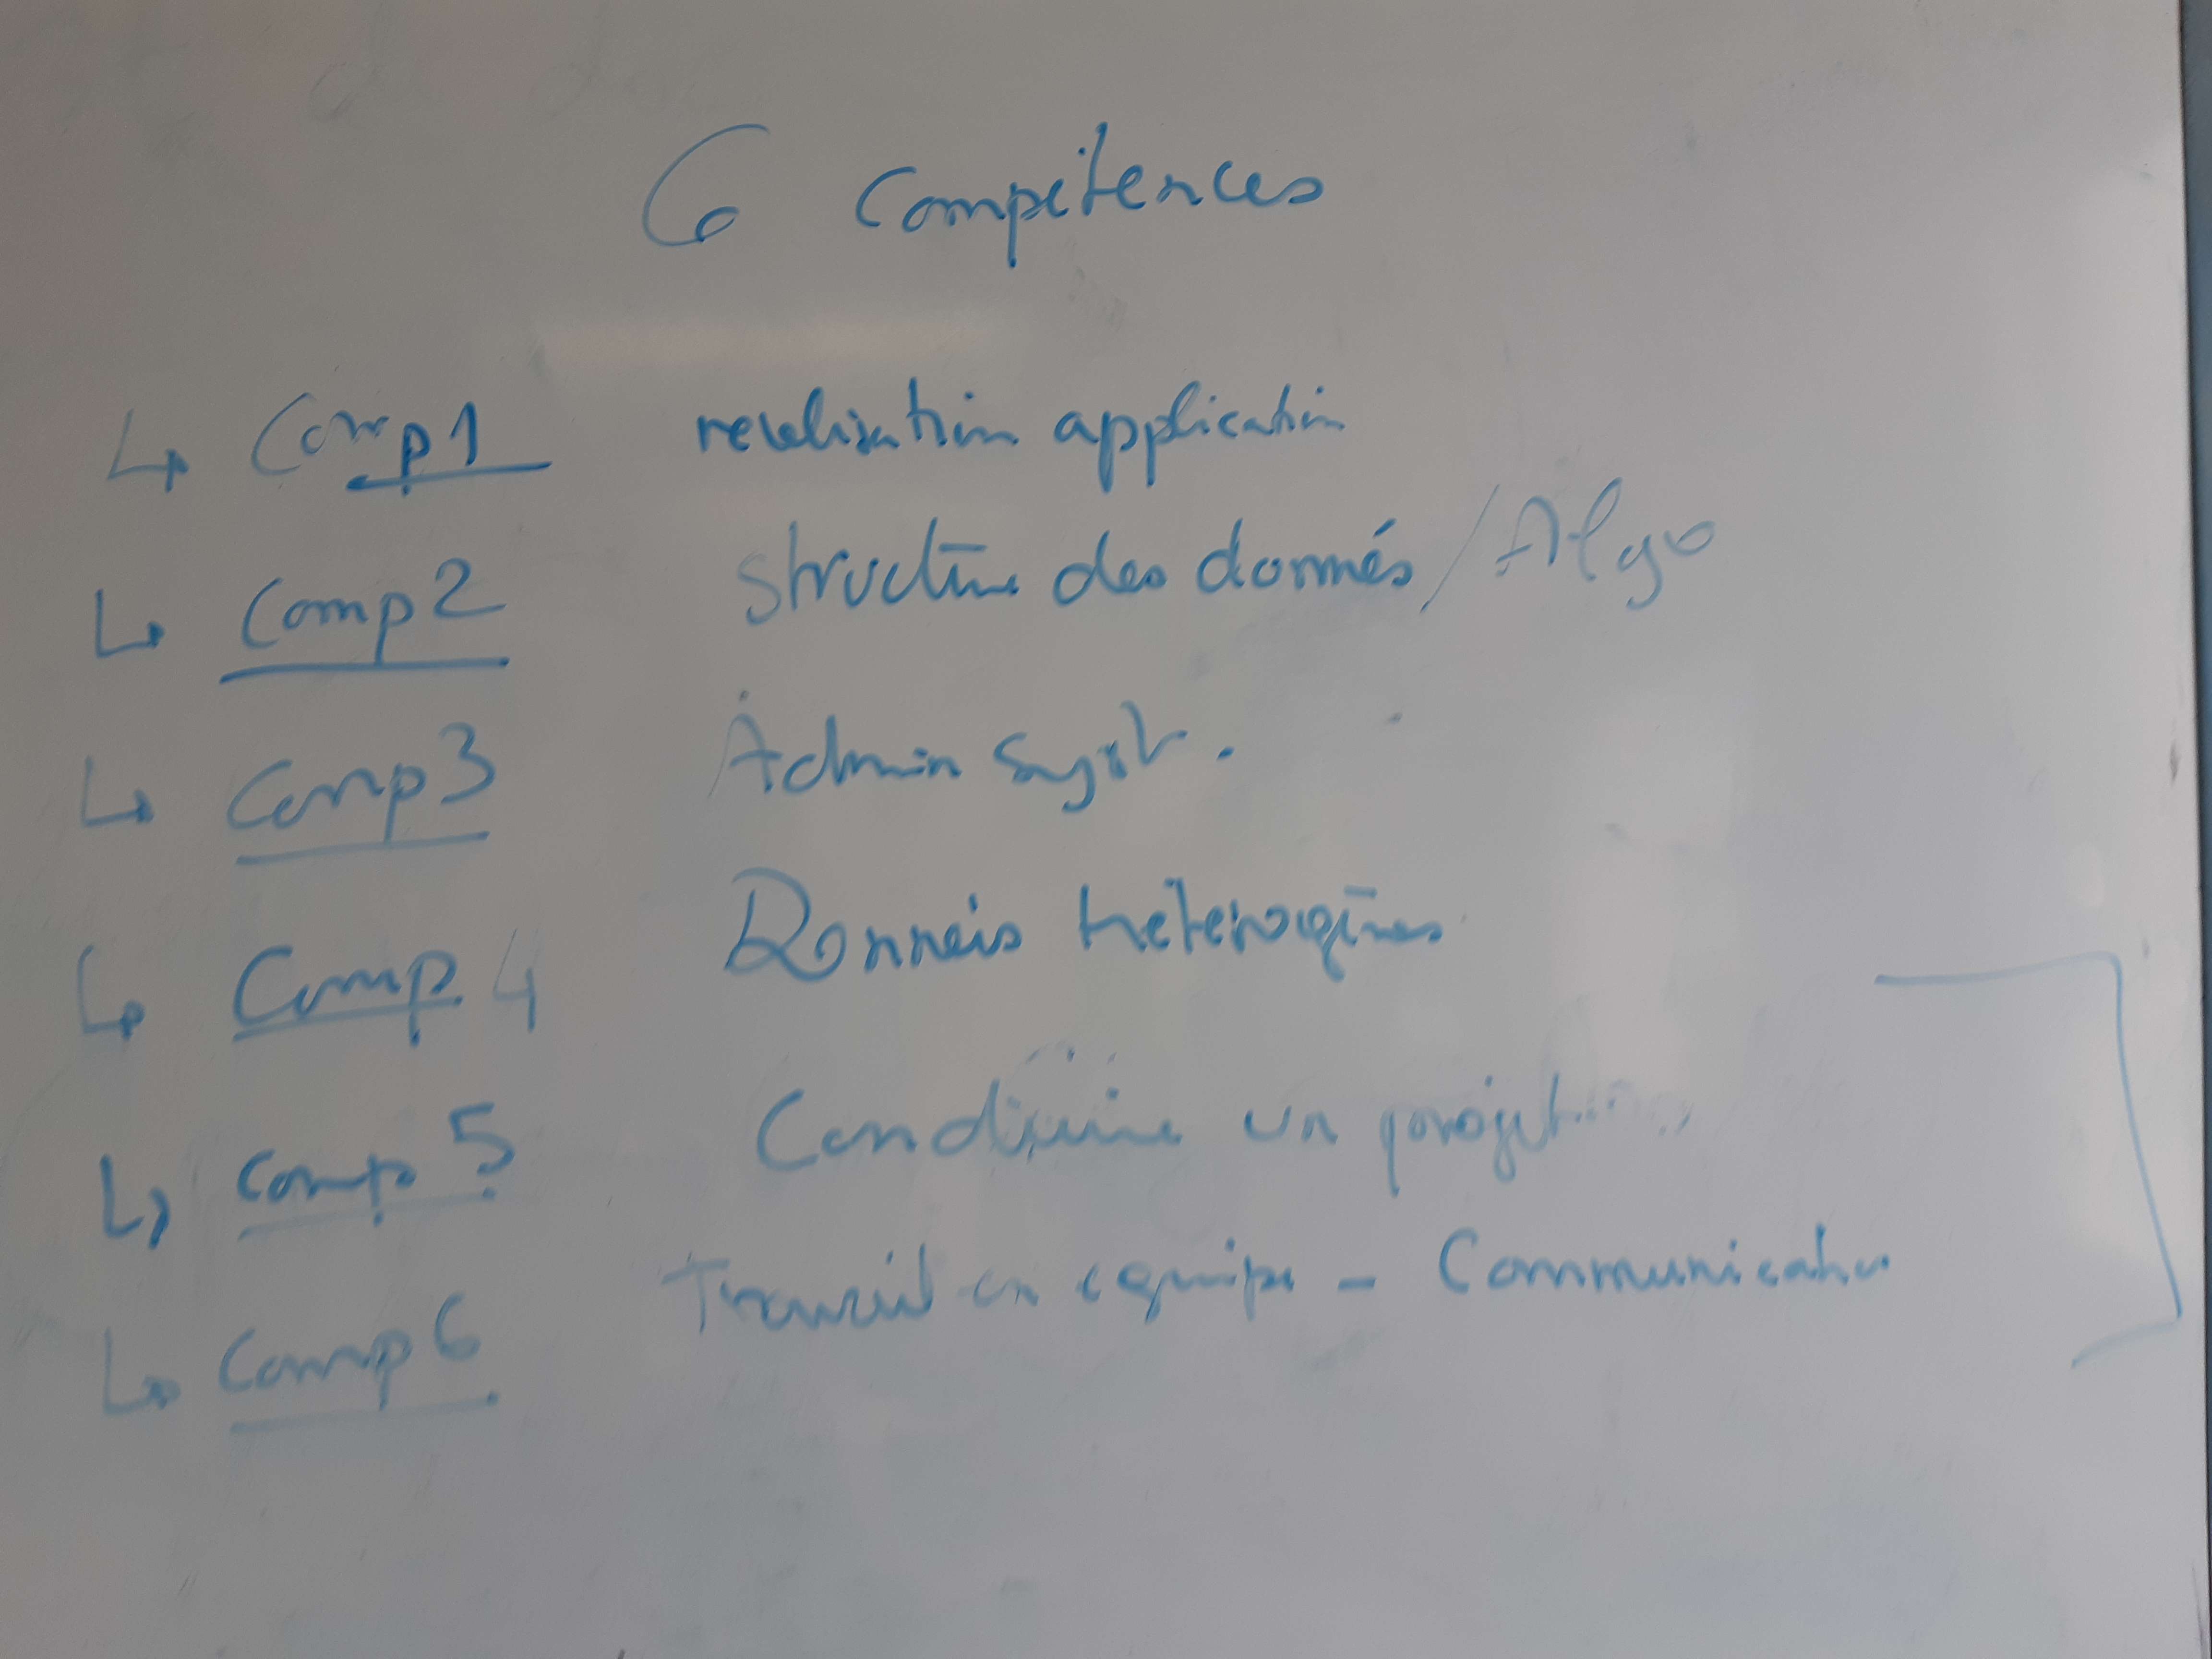 6 Compétences
↳ Comp1 realisation application
↳ Comp2 Structure des donnés / Algo
↳ Comp3 Admin Syst.
↳ Comp 4 Données hétérogènes
↳ Comp 5 Conduire un projet
↳ Comp6 Travail en equipe - Communication